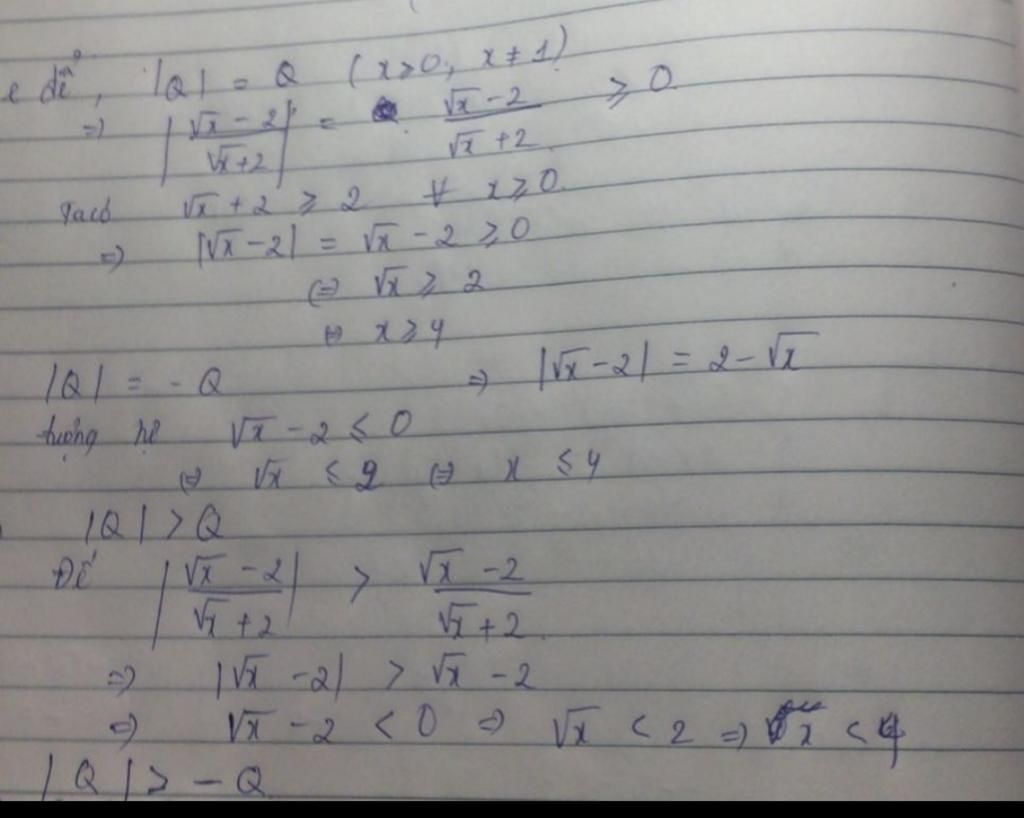 e để, |Q| = Q (x ≥ 0; x ≠ 1)
=> |(√x - 2)/(√x + 2)| = (√x - 2)/(√x + 2) ≥ 0
Ta có √x + 2 ≥ 2 ∀ x ≥ 0
=> |√x - 2| = √x - 2 ≥ 0
<=> √x ≥ 2
<=> x ≥ 4
|Q| = - Q => |√x - 2| = 2 - √x
tương tự √x - 2 ≤ 0
<=> √x ≤ 2 <=> x ≤ 4
|Q| > Q
Để |(√x - 2)/(√x + 2)| > (√x - 2)/(√x + 2)
=> |√x - 2| > √x - 2
=> √x - 2 < 0 => √x < 2 => x < 4
|Q| > - Q